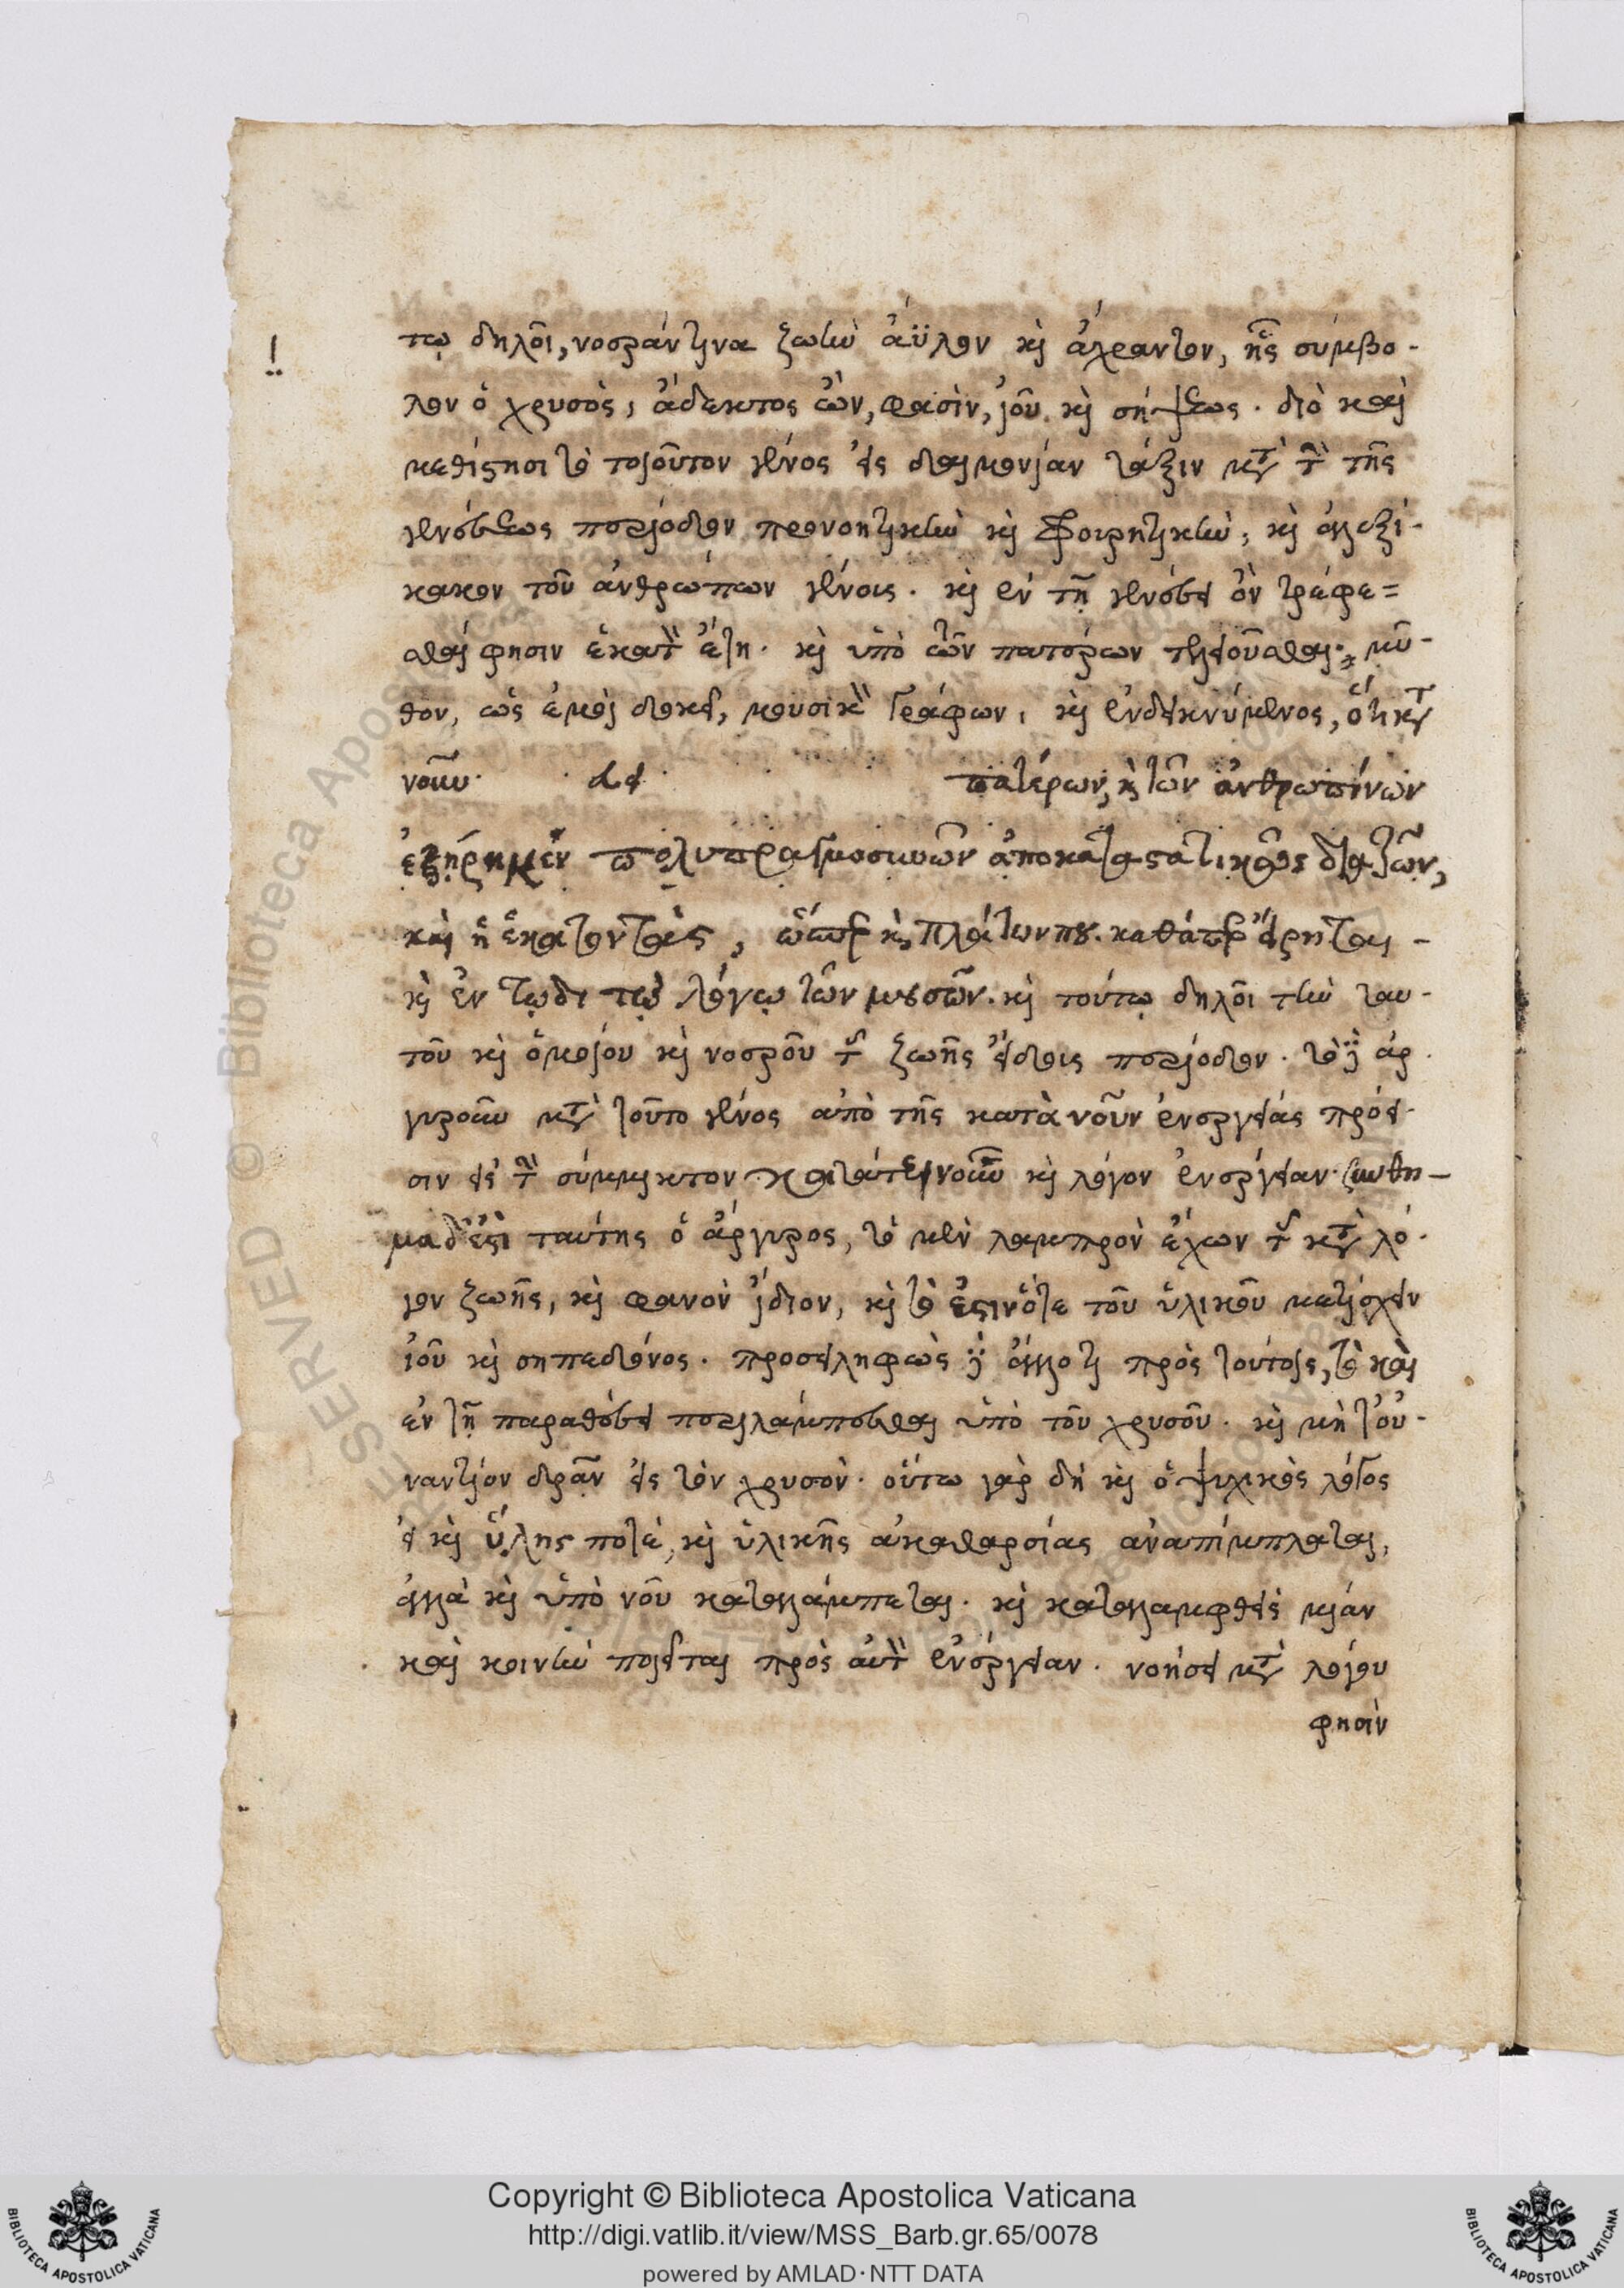 τῳ δηλοῖ, νοεράν τινα ζωὴν ἄϋλον κỳ ἄχραντον, ἧς σύμβο-
λον ὁ χρυσὸς, ἄδεκτος ὢν, φασὶν, ἰοῦ κỳ σήψεως. διὸ καὶ
μεθίστησι τὸ τοιοῦτον γένος εἰς δαιμονίαν τάξιν κατὰ τὴν τῆς
γενέσεως περίοδον προνοητικὴν κỳ φρουρητικὴν, κỳ ἀλεξί-
κακον τοῦ ἀνθρώπων γένους. κỳ ἐν τῇ γενέσει ὂν τρέφε=
σθαί φησιν ἑκατὸν ἔτη. κỳ ὑπὸ τῶν πατέρων
θον, ὡς ἐμοὶ δοκεῖ, μουσικὴν γράφων, κỳ ἐνδεικνύμενος, ὅτι κατὰ
νοῦν δεῖ πατέρων, κỳ τῶν ἀνθρωπίνων
ἐξῃρημέν πολυπραγμοσυνῶν ἀποκαταστατικῶς διαζῶν,
καὶ ἡ ἑκατοντὰς, ὥσπερ κỳ Πλάτων που. καθάπερ εἴρηται
κỳ ἐν τῷδι τῷ λόγῳ τῶν μουσῶν. κỳ τούτῳ δηλοῖ τὴν ταυ-
τοῦ κỳ ὁμοίου κỳ νοεροῦ τῆς ζωῆς εἴδους περίοδον. τὸ δὲ ἀρ
γυροῦν κατὰ τοῦτο γένος ἀπὸ τῆς κατὰ νοῦν ἐνεργείας πρόει-
σιν εἰς τὴν σύμμικτον κατά τε νοῦν κỳ λόγον ἐνέργειαν. συνθη-
μα δ' ἐστὶ ταύτης ὁ ἄργυρος, τὸ μὲν λαμπρὸν ἔχων τῆς κατὰ λό-
γον ζωῆς, κỳ φανὸν ἴδιον, κỳ τὸ ἔστιν ὅτε τοῦ ὑλικοῦ μετίσχειν
ἰοῦ κỳ σηπεδόνος. προσειληφὼς δὲ ἄλλό τι πρὸς τούτοις, τὸ καὶ
ἐν τῇ παραθέσει περιλάμπεσθαι ὑπὸ τοῦ χρυσοῦ. κỳ μὴ τοὐ-
ναντίον δρᾷν εἰς τὸν χρυσὸν. οὕτω γὰρ δὴ κỳ ὁ ψυχικὸς λόγος
εἰ κỳ ὕλης ποτὲ, κỳ ὑλικῆς ἀκαθαρσίας ἀναπίμπλαται,
ἀλλὰ κỳ ὑπὸ νοῦ καταλάμπεται. κỳ καταλαμφθεὶς μίαν
καὶ κοινὴν ποιεῖται πρὸς αὐτὸν ἐνέργειαν. νοήσει μετὰ λόγου
φησὶν
Copyright © Biblioteca Apostolica Vaticana
http://digi.vatlib.it/view/MSS_Barb.gr.65/0078
powered by AMLAD·NTT DATA
BIBLIOTECA APOSTOLICA VATICANA
BIBLIOTECA APOSTOLICA VATICANA